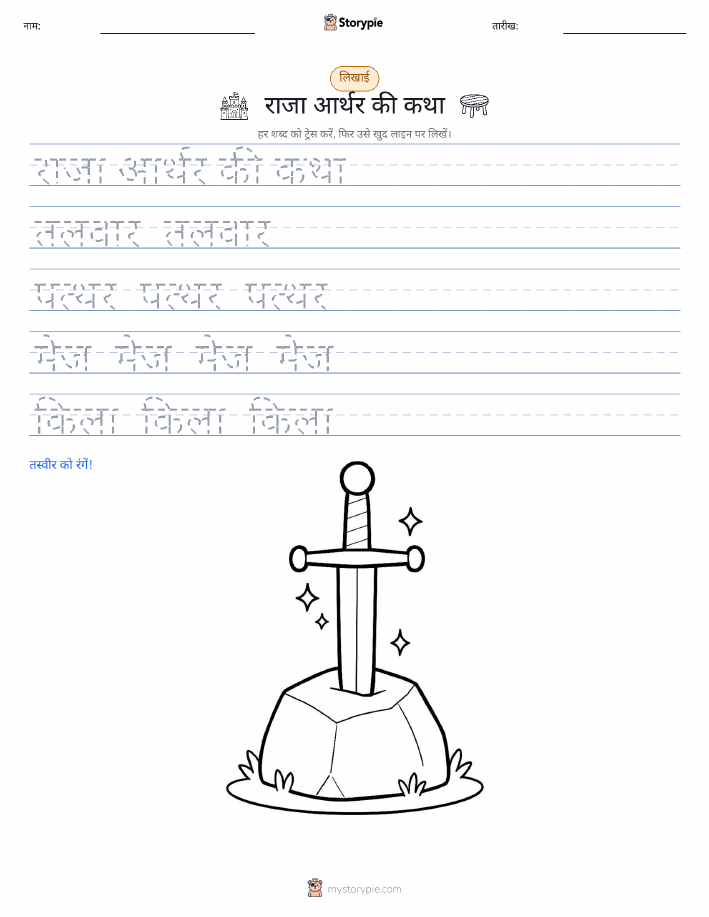 नाम:
Storypie
तारीख:
लिखाई
राजा आर्थर की कथा
हर शब्द को ट्रेस करें, फिर उसे खुद लाइन पर लिखें।
राजा आर्थर की कथा
तलवार तलवार
पत्थर पत्थर पत्थर
मेज मेज मेज मेज
किला किला किला
तस्वीर को रंगें!
mystorypie.com